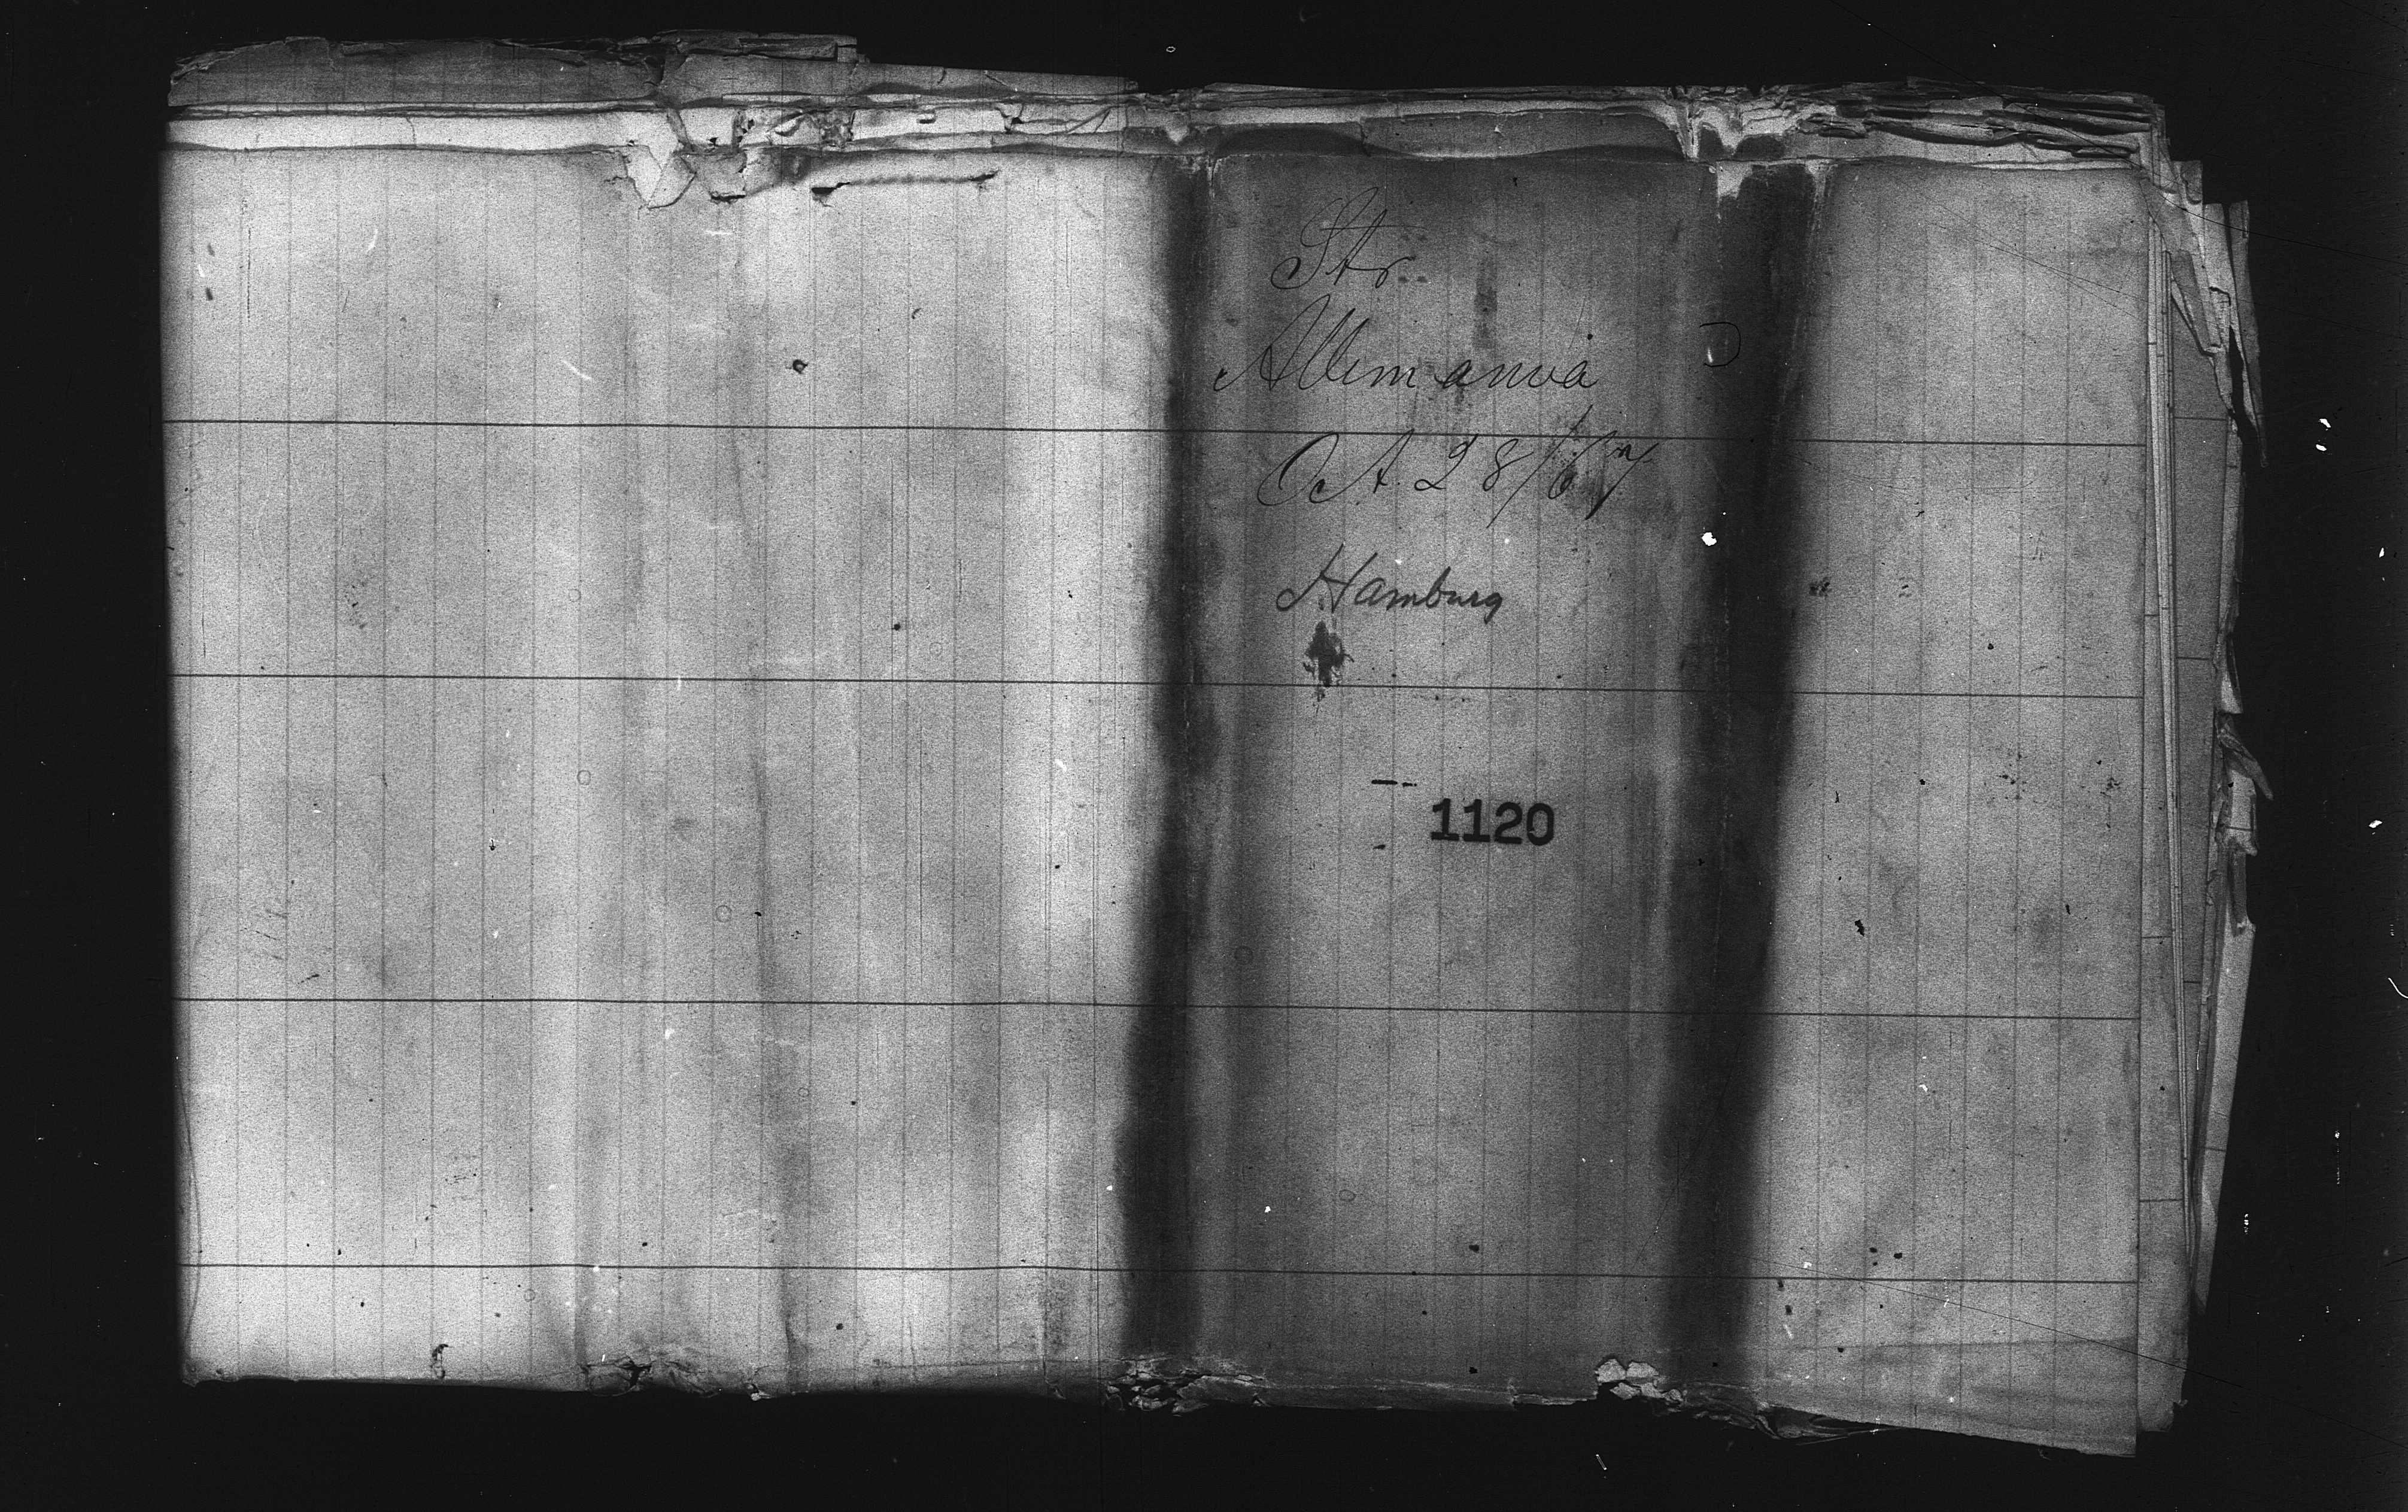 Str.
Allemania
Oct. 28/67
Hamburg
1120